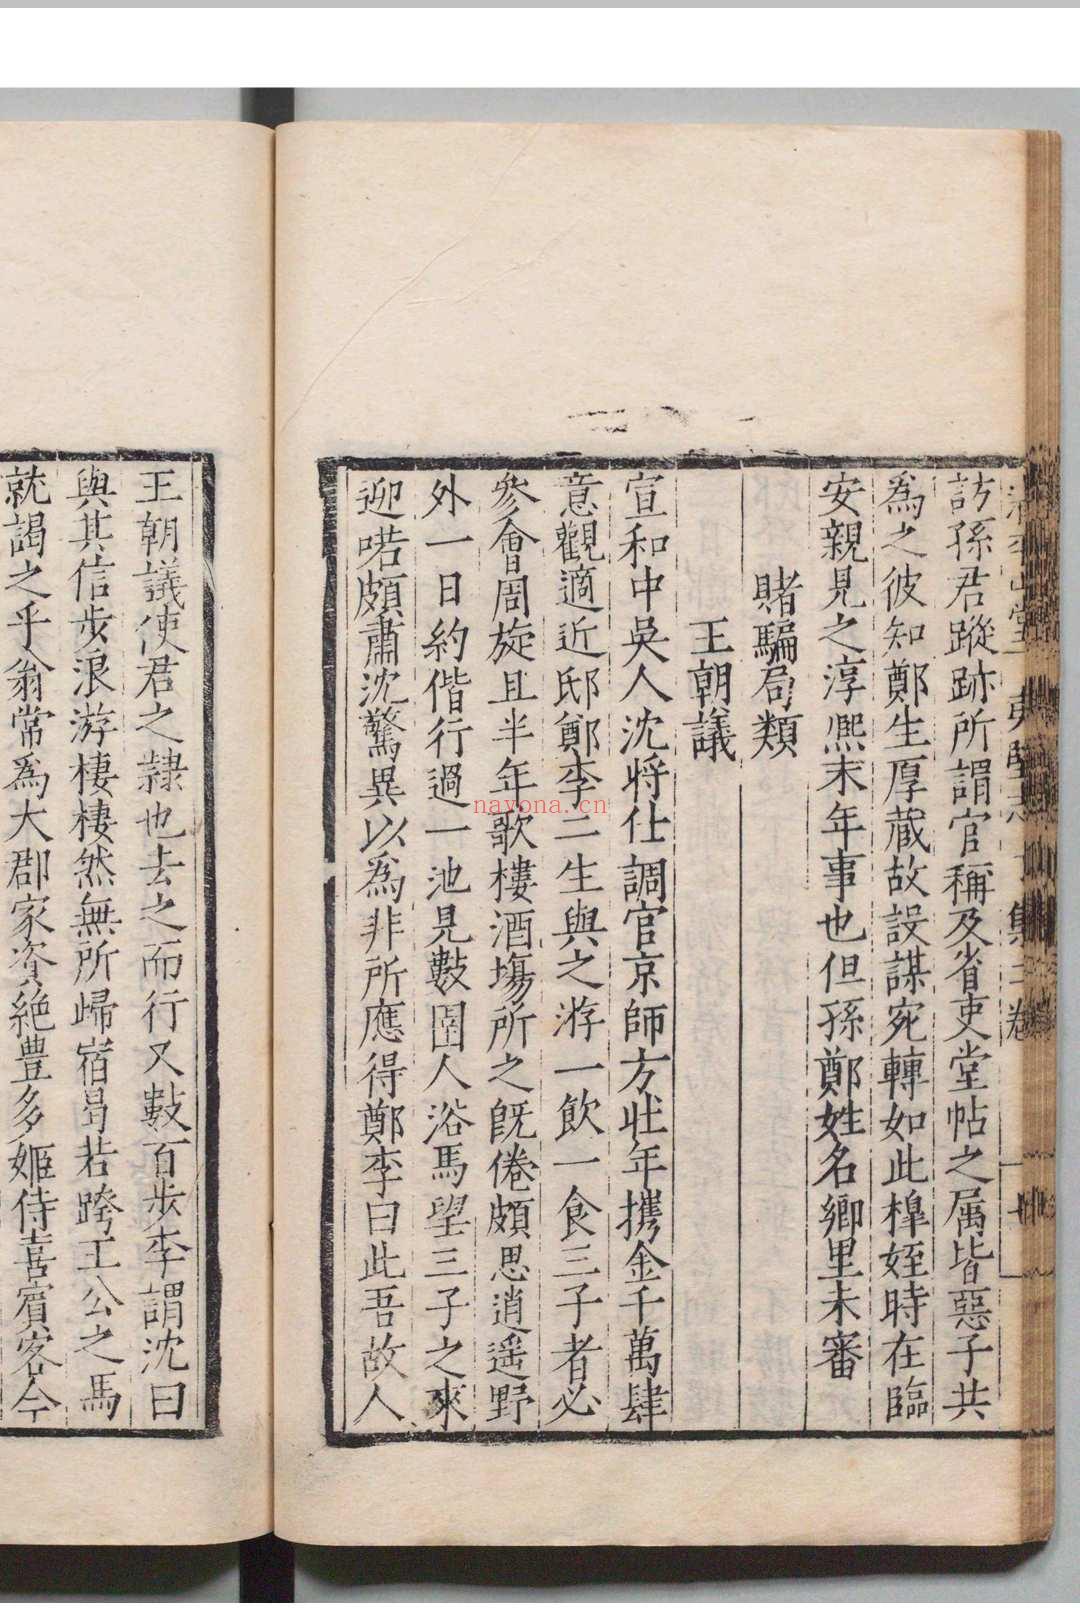 訪孫君蹤跡所謂官稱及省吏堂帖之属皆惡子共
為之彼知鄭生厚藏故設謀宛轉如此樟姪時在臨
安親見之淳熈末年事也但孫鄭姓名鄉里未審
賭騙局類
王朝議
宣和中吳人沈將仕調官京師方壯年攜金千萬肆
意觀適近邸鄭李二生與之游一飲一食三子者必
參會周旋且半年歌樓酒塲所之旣倦頗思逍遥野
外一日約偕行過一池見數圉人浴馬望三子之來
迎喏頗肅沈驚異以為非所應得鄭李曰此吾故人
王朝議使君之隷也去之而行又數百步李謂沈曰
與其信步浪游棲棲然無所歸宿曷若跨王公之馬
就謁之乎翁常為大郡家資絶豊多姬侍喜賓客今
nayona.cn